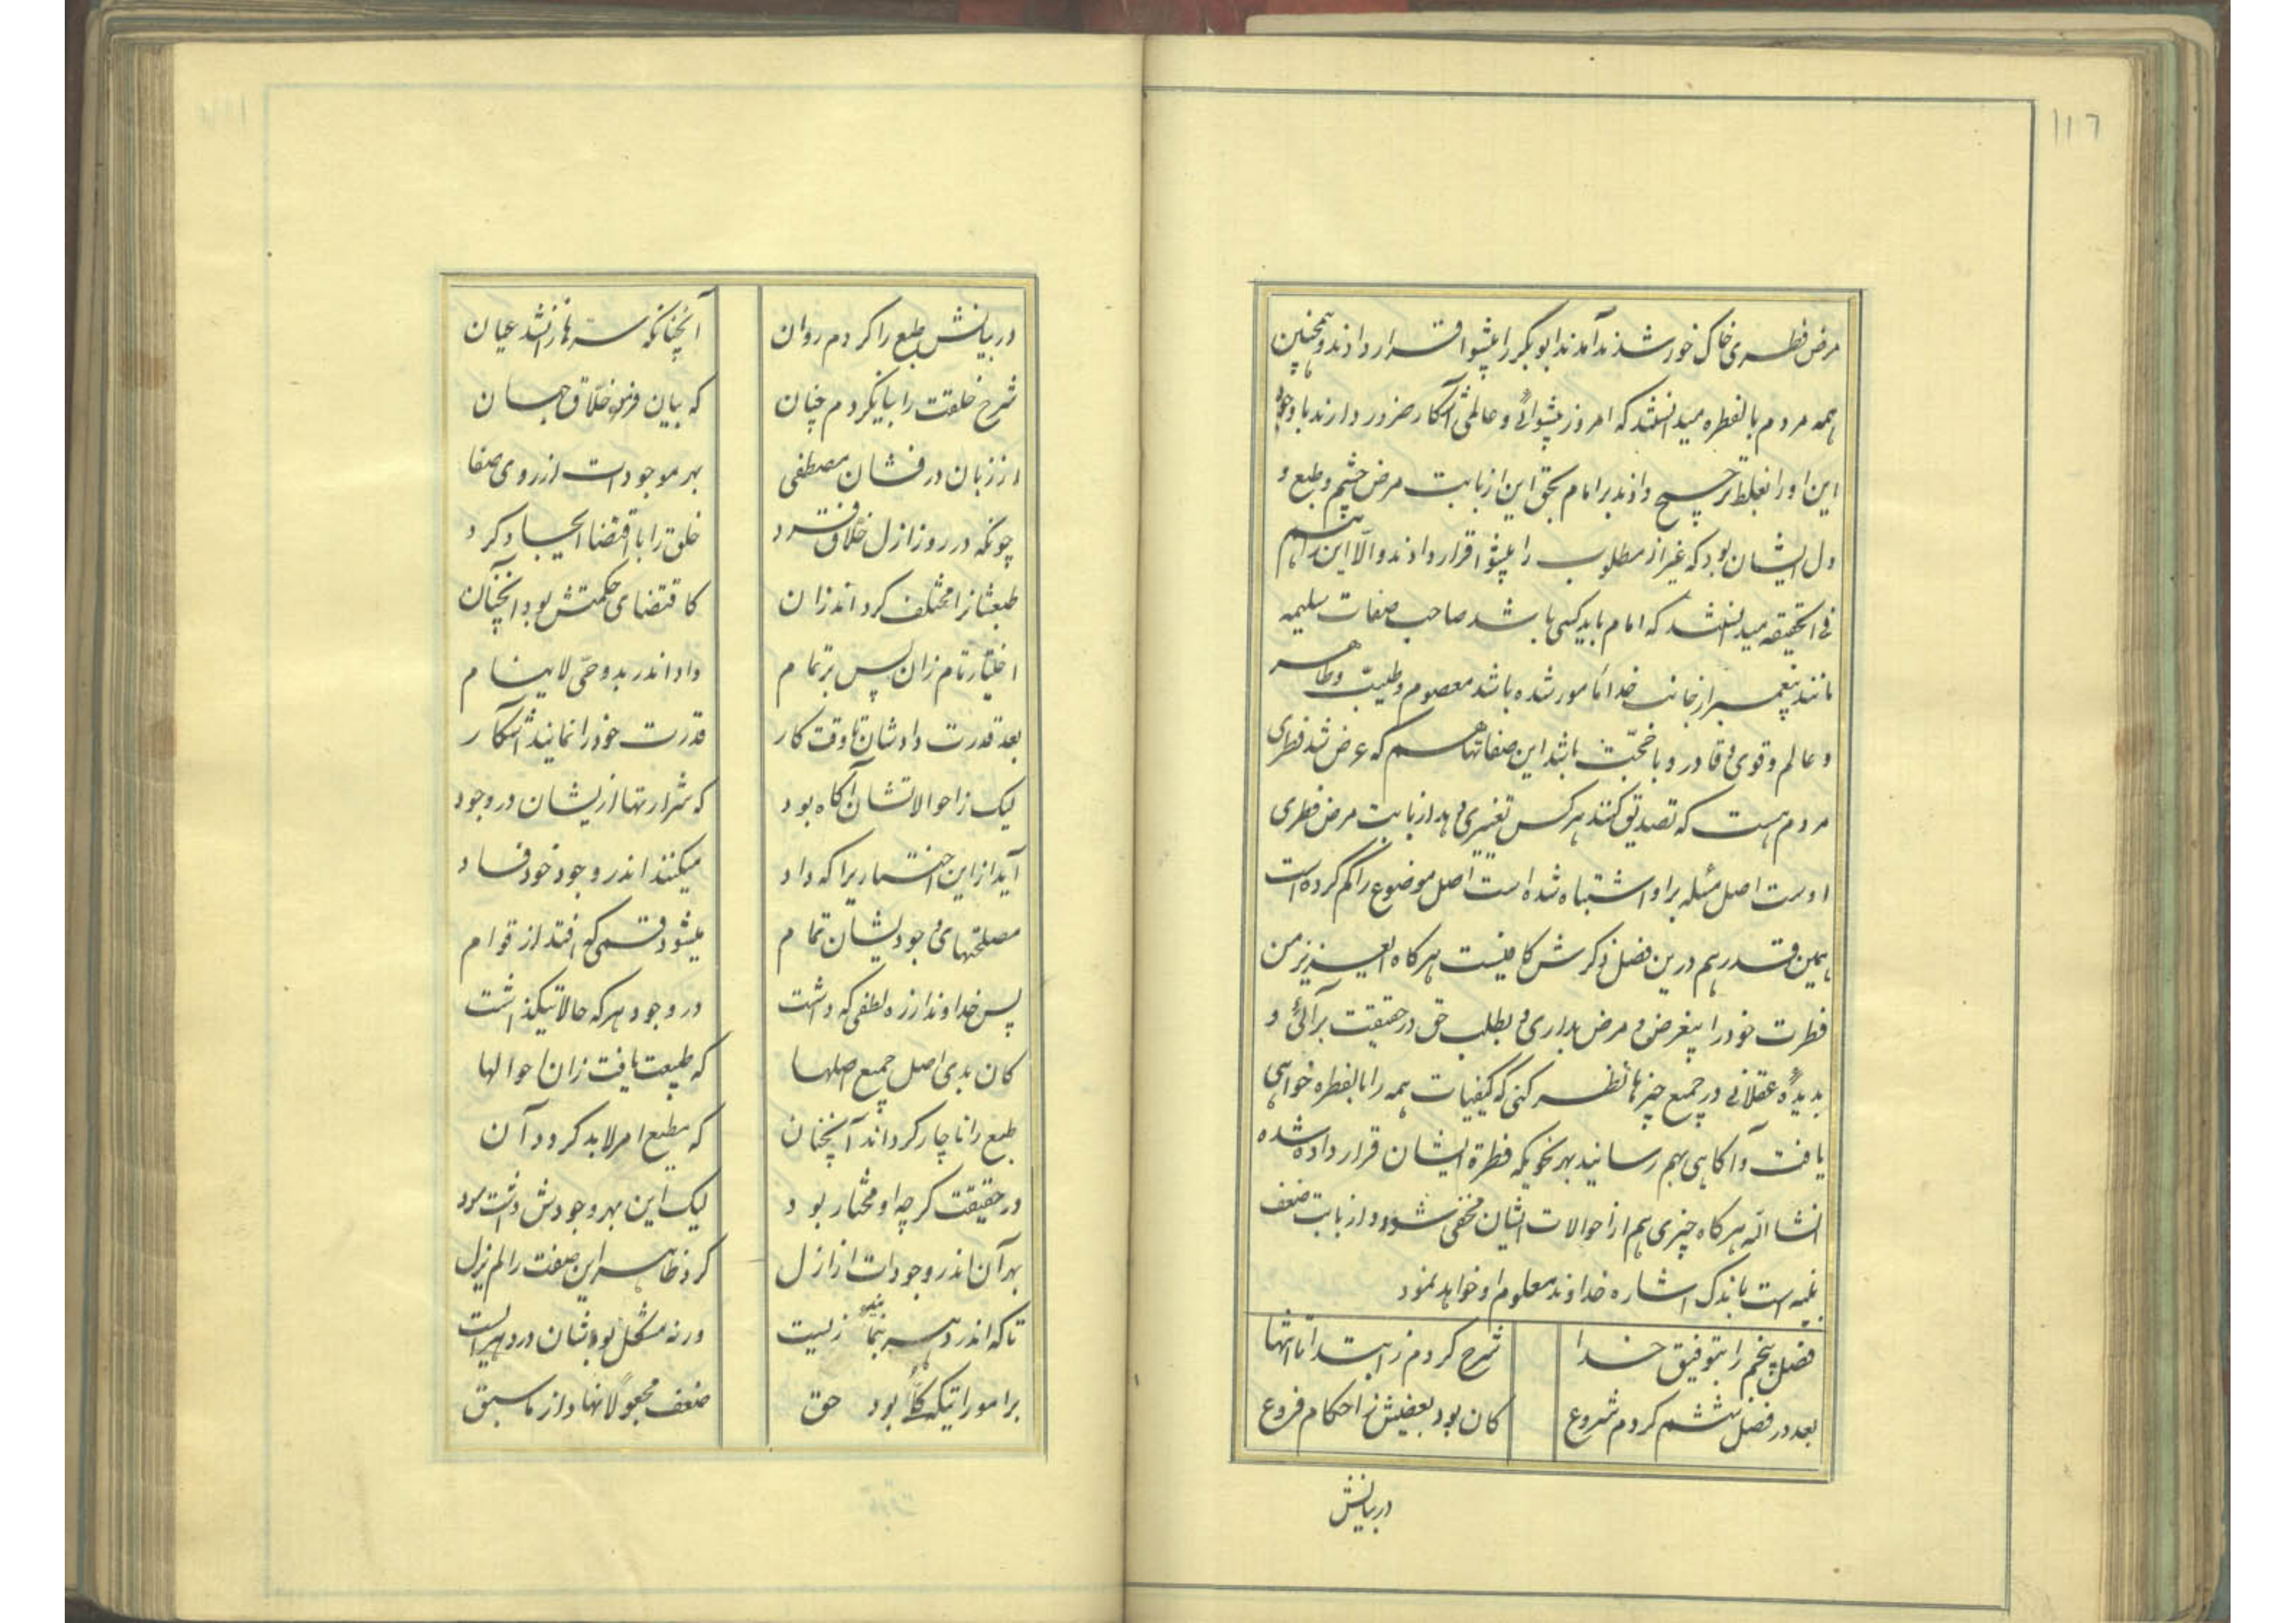 ۱۱٦
مرض فطری خاک خور شدند آمدند ابوبکر را پیشوا قرار دادند و همچنین
همه مردم بالفطره میدانستند که امروز پیشوائی و عالمی آشکار ضرور دارند با وجود
این او را بغلط ترجیح دادند بر امام بحق این از بابت مرض چشم و طبع و
دل ایشان بود که غیر از مطلوب را پیشوا قرار دادند و الّا این را هم
فی الحقیقه میدانستند که امام باید کسی باشد صاحب صفات سلیمه
مانند پیغمبر از جانب خدا مامور شده باشد معصوم و طیّب و طاهر
و عالم و قوی و قادر و با محبّت باشد این صفاتها هم که عرض شد فطری
مردم هست که تصدیق کنند هر کس تغییری دهد از بابت مرض فطری
اوست اصل مسئله بر او اشتباه شده است اصل موضوع را گم کرده است
همین قدر هم درین فصل ذکرش کافیست هرگاه ایعزیز من
فطرت خود را بیغرض و مرض بداری و بطلب حق در حقیقت برآئی و
بدیده عقلانی در جمیع چیزها نظر کنی که کیفیات همه را بالفطره خواهی
یافت و آگاهی بهم رسانید بهر نحویکه فطرة ایشان قرار داده شده
انشاالله هرگاه چیزی هم از حوالات ایشان مخفی شود و از بابت ضعف
بنیه است باندک اشاره خداوند معلوم او خواهد نمود
فصل پنجم را بتوفیق خدا شرح کردم ز ابتدا تا انتها
بعد در فصل ششم کردم شروع کان بود بعضیش ز احکام فروع
در بیانش
در بیانش طبع را کردم روان آنچنانکه سرّها زان شد عیان
شرح خلقت را بیان کردم چنان که بیان فرمود خلّاق جهان
از زبان درفشان مصطفی بهر موجودات از روی صفا
چونکه در روز ازل خلّاق فرد خلق را با اقتضا ایجاد کرد
طبعشانرا مختلف کرد اندر آن کاقتضای حکمتش بود آنچنان
اختیار تام زان پس بر تمام داد اندر بدو حیّ لاینام
بعد قدرت دادشان تا وقت کار قدرت خود را نمایند آشکار
لیک ز احوالاتشان آگاه بود که شرارتها ازیشان در وجود
آید از این اختیاریرا که داد میکنند اندر وجود خود فساد
مصلحتهای وجودیشان تمام میشود قسمی که افتد از قوام
پس خداوند از ره لطفی که داشت در وجود هر که حالاتی گذاشت
کان بدی اصل جمیع اصلها که طبیعت یافت زان احوالها
طبع را ناچار کرداند آنچنان که مطیع امر لابد گردد آن
در حقیقت گرچه او مختار بود لیک این بهر وجودش داشت سود
بهر آن اندر وجودات از ازل کرد ظاهر این صفت را لم یزل
تاکه اندر دهر بنمایند زیست ورنه مشکل بودشان در دهر ایست
بر اموراتیکه کلّاً بود حق ضعف مجعولا نهاد از ماسبق